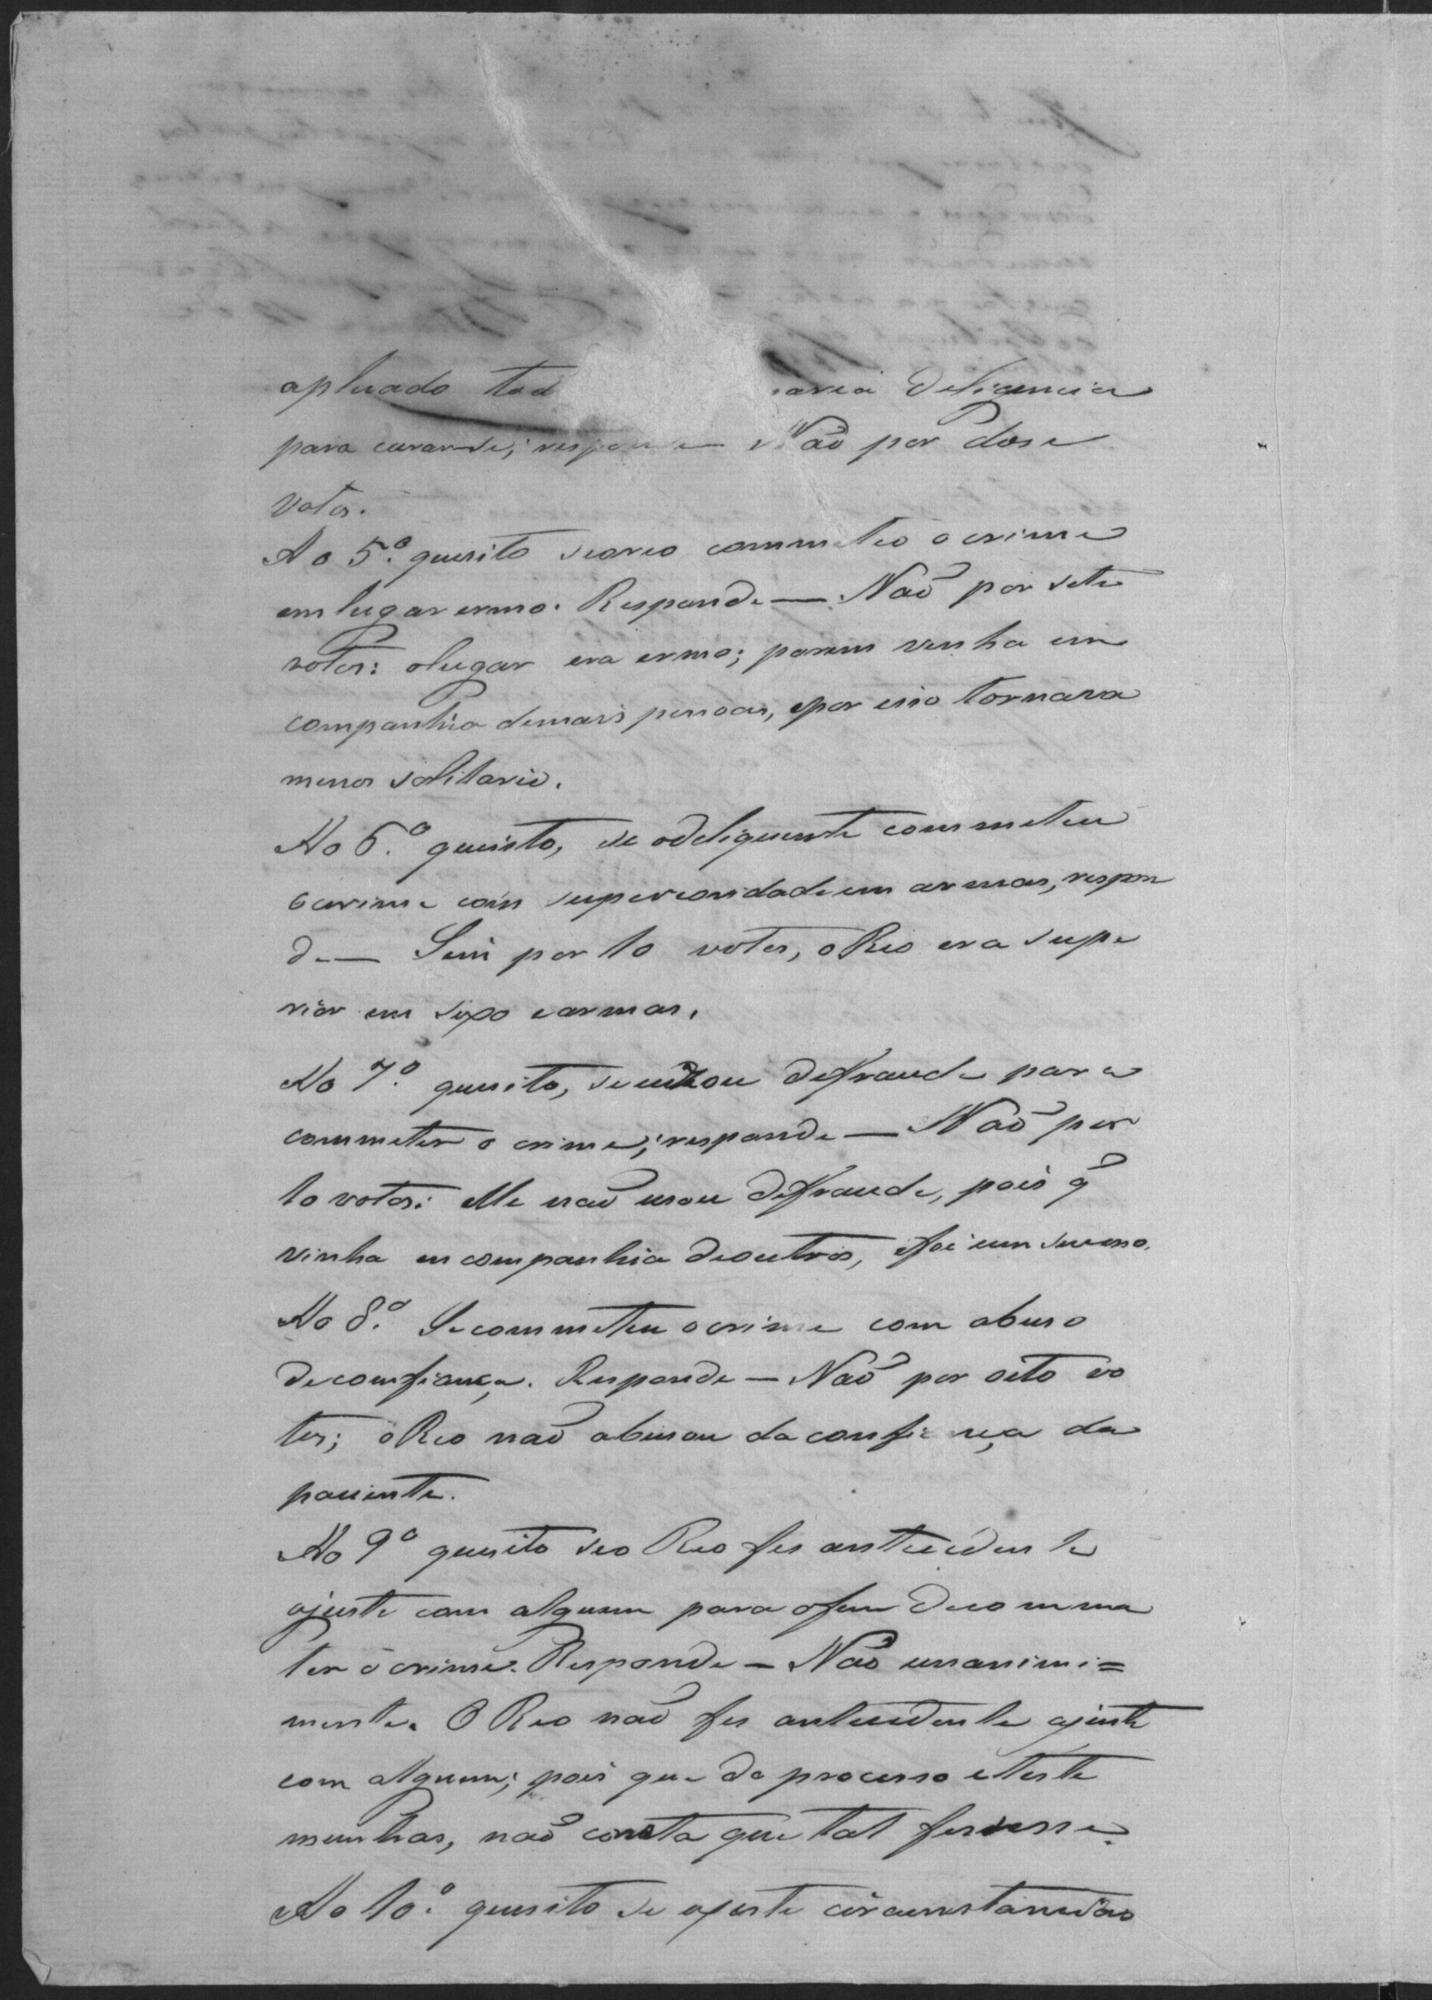 aplicado tod
para curar-se; responde — Não por dose
votos.
Ao 5.º quesito se o reo commeteo o crime
em lugar ermo. Responde — Não por sete
votos: o lugar era ermo; porem vinha em
companhia de mais pessoas, e por isso tornava
menos solitario.
Ao 6.º quesito, se o deliquente commeteu
o crime com superioridade em armas, respon
de — Sim por 10 votos, o Reo era supe
rior em sexo e armas.
Ao 7.º quesito, se usou de fraude para
commeter o crime; responde — Não por
10 votos: Elle não usou de fraude, pois q̃
vinha em companhia de outros, e foi um
Ao 8.º Se commeteu o crime com abuso
de confiança. Responde — Não por oito vo
tos; o Reo não abusou da confiança da
paciente.
Ao 9º quesito se o Reo fes antecedente
ajuste com alguem para o fim de comme
ter o crime. Responde — Não unanimi=
mente. O Reo não fes antecedente ajuste
com alguem; pois que do processo e teste
munhas, não consta que tal fisesse.
Ao 10.º quesito se existe circumstancias